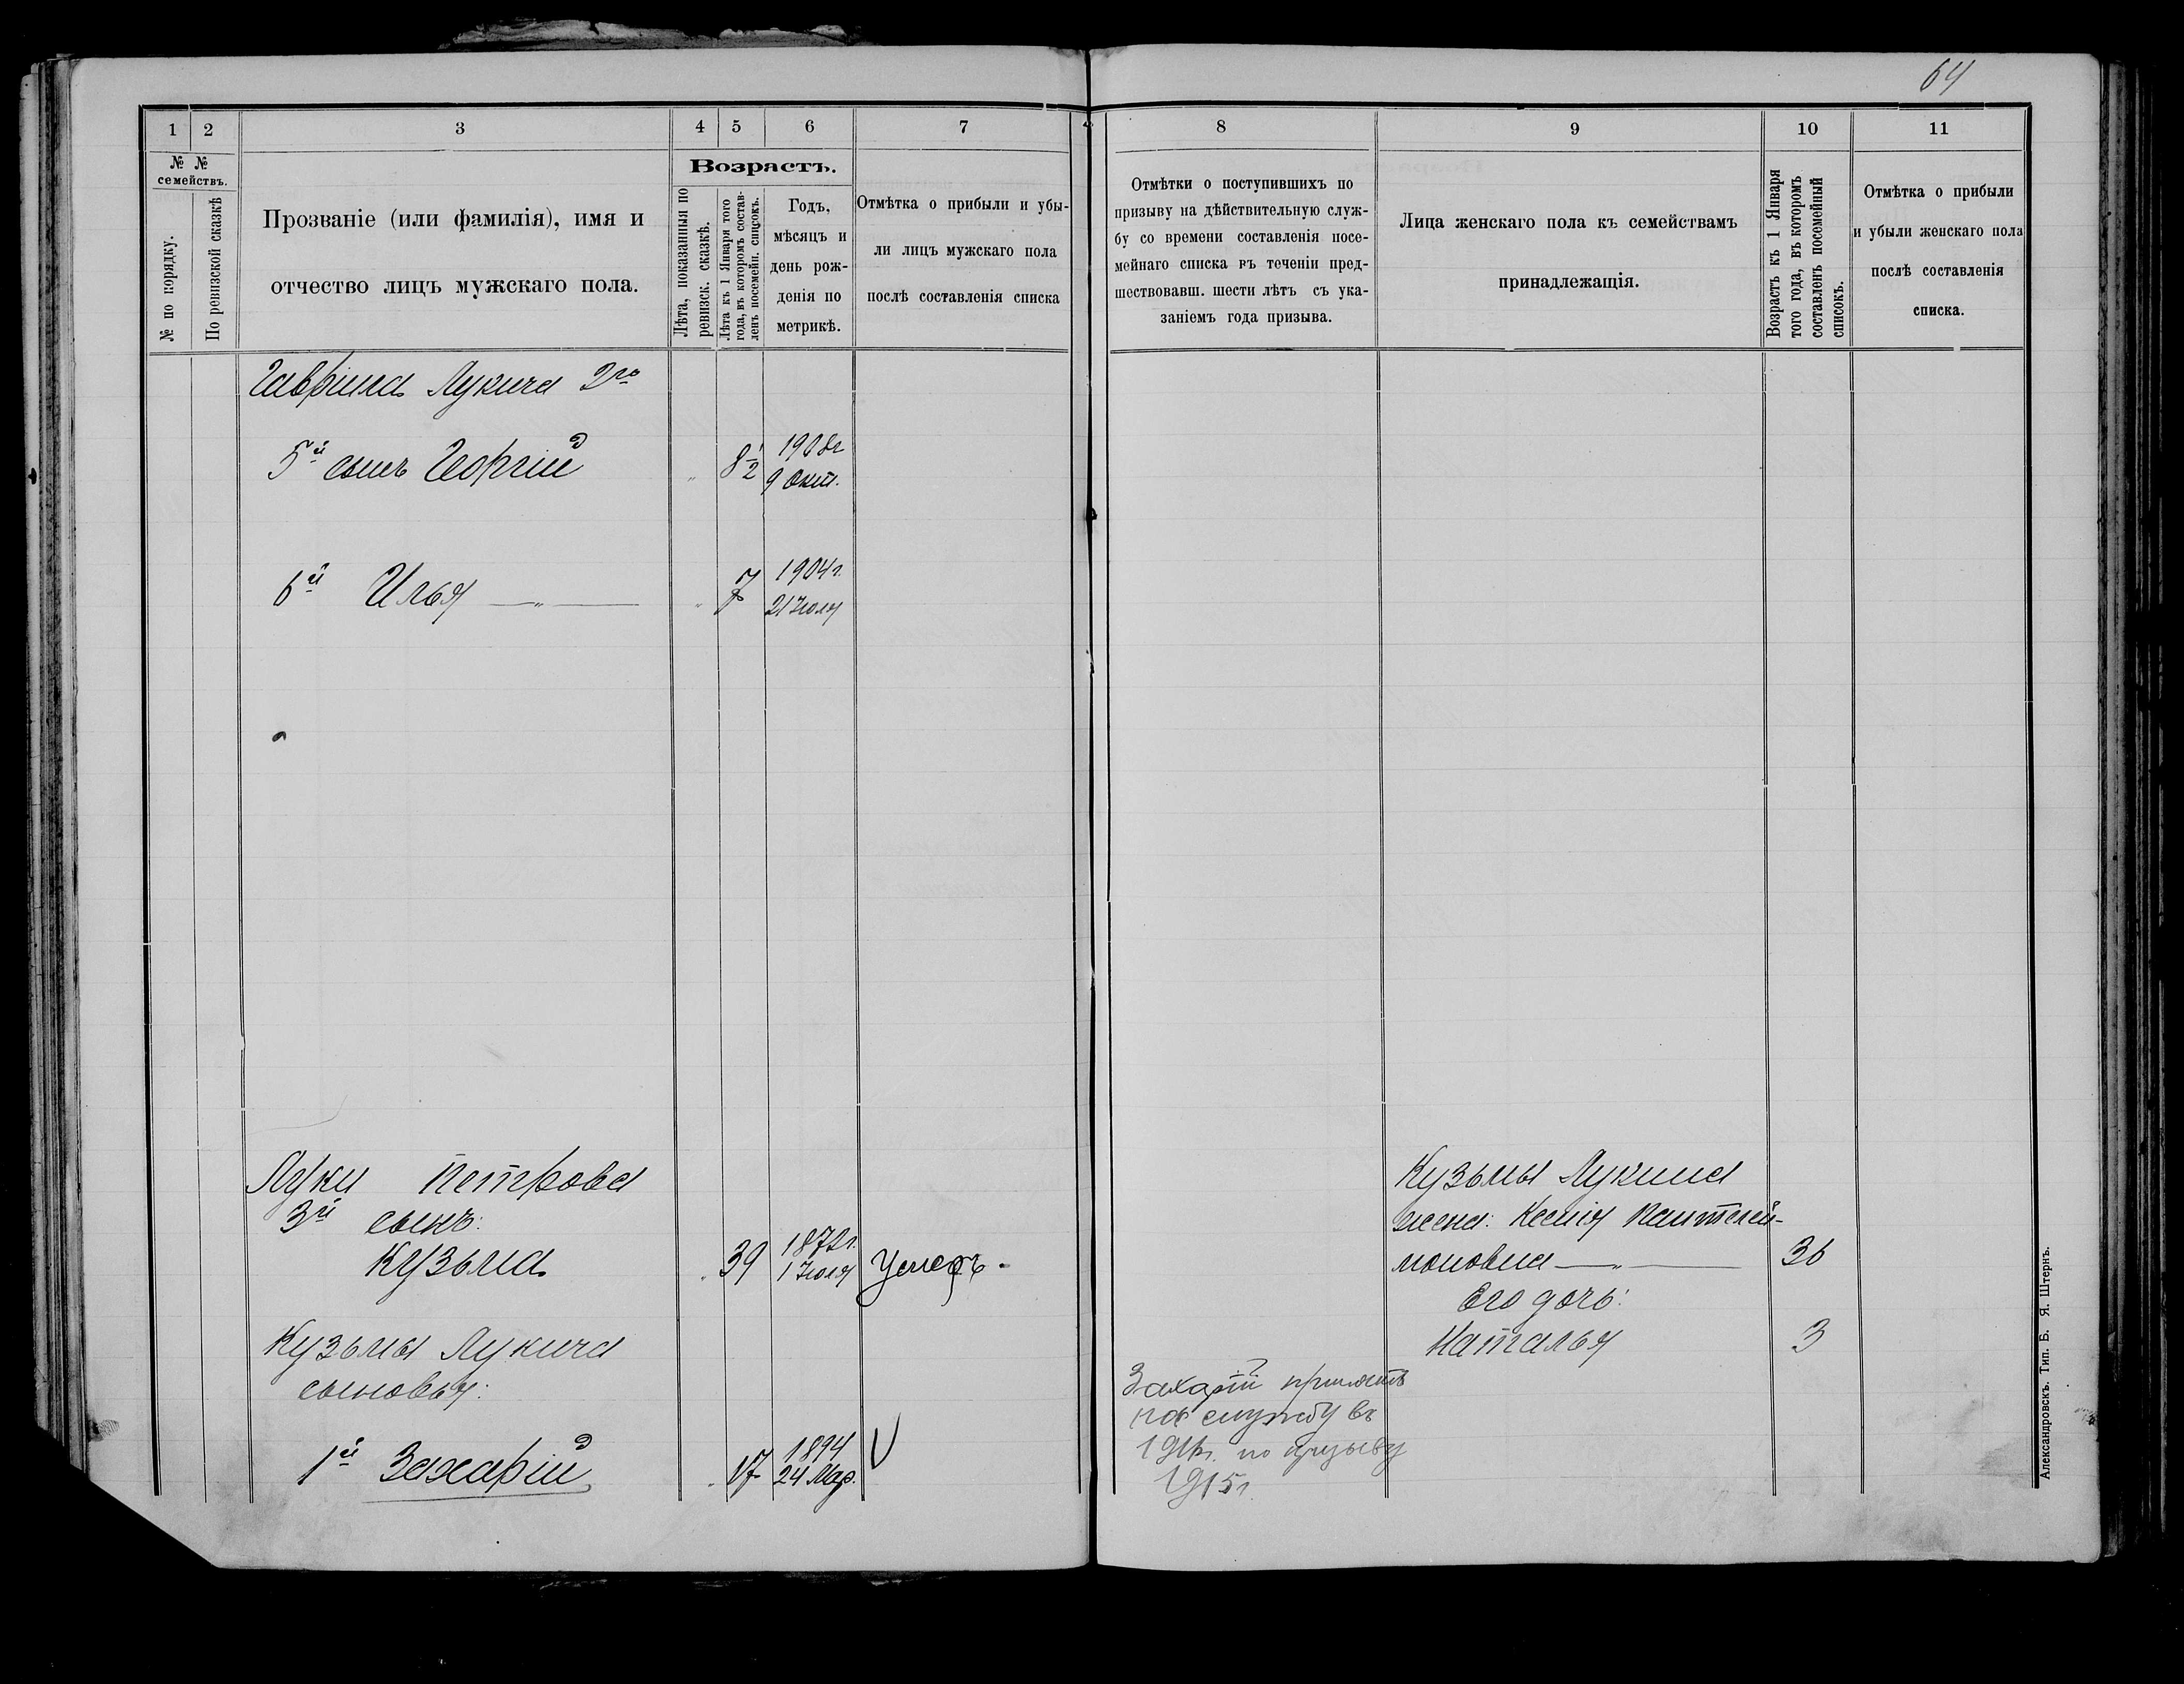 64
1 2 3 4 5 6 7
№ № семействъ.
№ по порядку.
По ревизской сказкѣ
Прозваніе (или фамилія), имя и
отчество лицъ мужскаго пола.
Возрастъ.
Лѣта, показанныя по
ревизск. сказкѣ.
Лѣта къ 1 Января того
года, въ которомъ состав-
ленъ посемейн. списокъ.
Годъ,
мѣсяцъ и
день рож-
денія по
метрикѣ.
Отмѣтка о прибыли и убы-
ли лицъ мужскаго пола
послѣ составленія списка
Гавріила Лукича 2го
5й сынъ Георгій " 8½ 190 г
9 Окт.
6й Илья —"— " 7 1904 г.
21 Іюля
Луки Петрова
3й сынъ:
Кузьма " 39 187 г.
1 Іюля Умеръ.
Кузьмы Лукича
сыновья:
1й Захарій " 17 1894
24 Мар. V
8 9 10 11
Отмѣтки о поступившихъ по
призыву на дѣйствительную служ-
бу со времени составленія посе-
мейнаго списка въ теченіи пред-
шествовавш. шести лѣтъ съ ука-
заніемъ года призыва.
Лица женскаго пола къ семействамъ
принадлежащія.
Возрастъ къ 1 Января
того года, въ которомъ
составленъ посемейный
списокъ.
Отмѣтка о прибыли
и убыли женскаго пола
послѣ составленія
списка.
Кузьмы Лукина
жена: Ксенія Пантелей-
моновна —"— 36
Его дочь:
Наталья 3
Захарій принятъ
на службу въ
г. по призыву
1915 г.
Александровскъ. Тип. Б. Я. Штернъ.